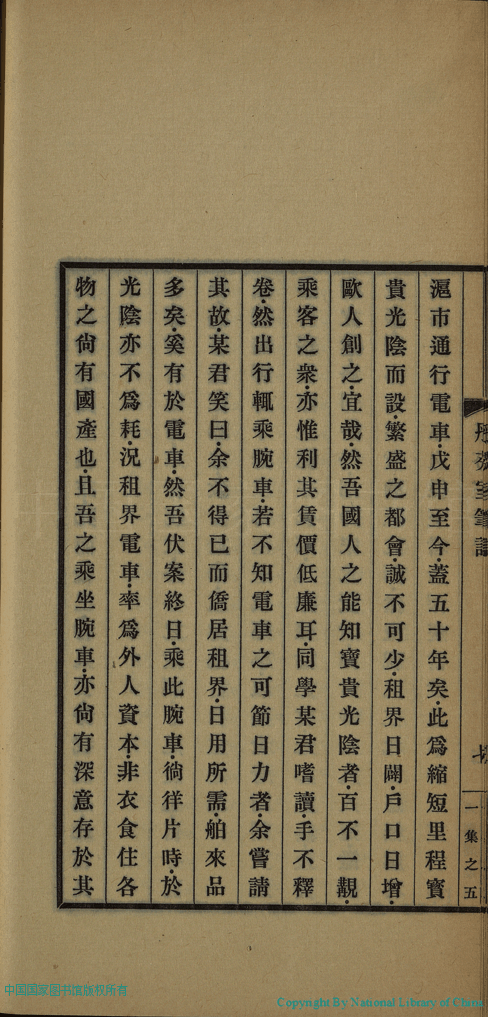 滬市通行電車.戊申至今.蓋五十年矣.此爲縮短里程寶
貴光陰而設.繁盛之都會.誠不可少.租界日闢.戶口日增.
歐人創之.宜哉.然吾國人之能知寶貴光陰者.百不一覯.
乘客之衆.亦惟利其賃價低廉耳.同學某君嗜讀.手不釋
卷.然出行輒乘腕車.若不知電車之可節日力者.余嘗請
其故.某君笑曰.余不得已而僑居租界.日用所需.舶來品
多矣.奚有於電車.然吾伏案終日.乘此腕車.徜徉片時.於
光陰亦不爲耗.況租界電車.率爲外人資本.非衣食住各
物之尙有國產也.且吾之乘坐腕車.亦尙有深意存於其
一集之五
中国国家图书馆版权所有
Copyright By National Library of China